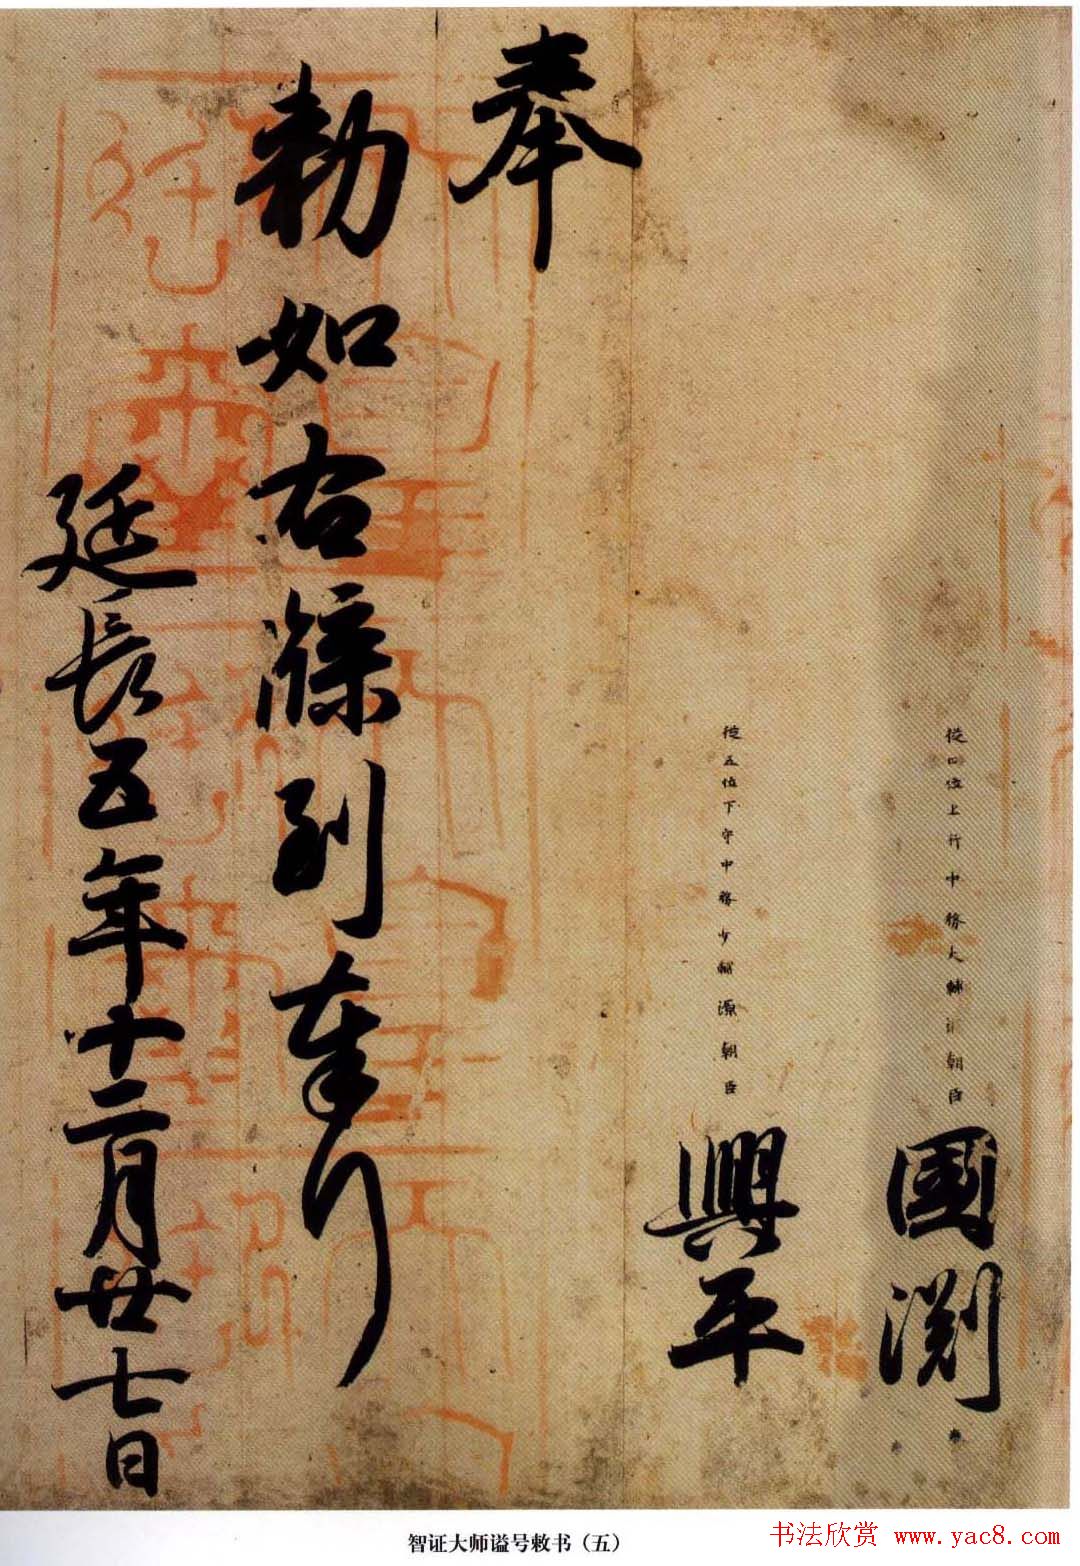 從四位上行中務大輔源朝臣國渕
從五位下守中務少輔源朝臣興平
奉
勅如右牒到奉行
延長五年十二月廿七日
智证大师谥号敕书（五）
书法欣赏 www.yac8.com